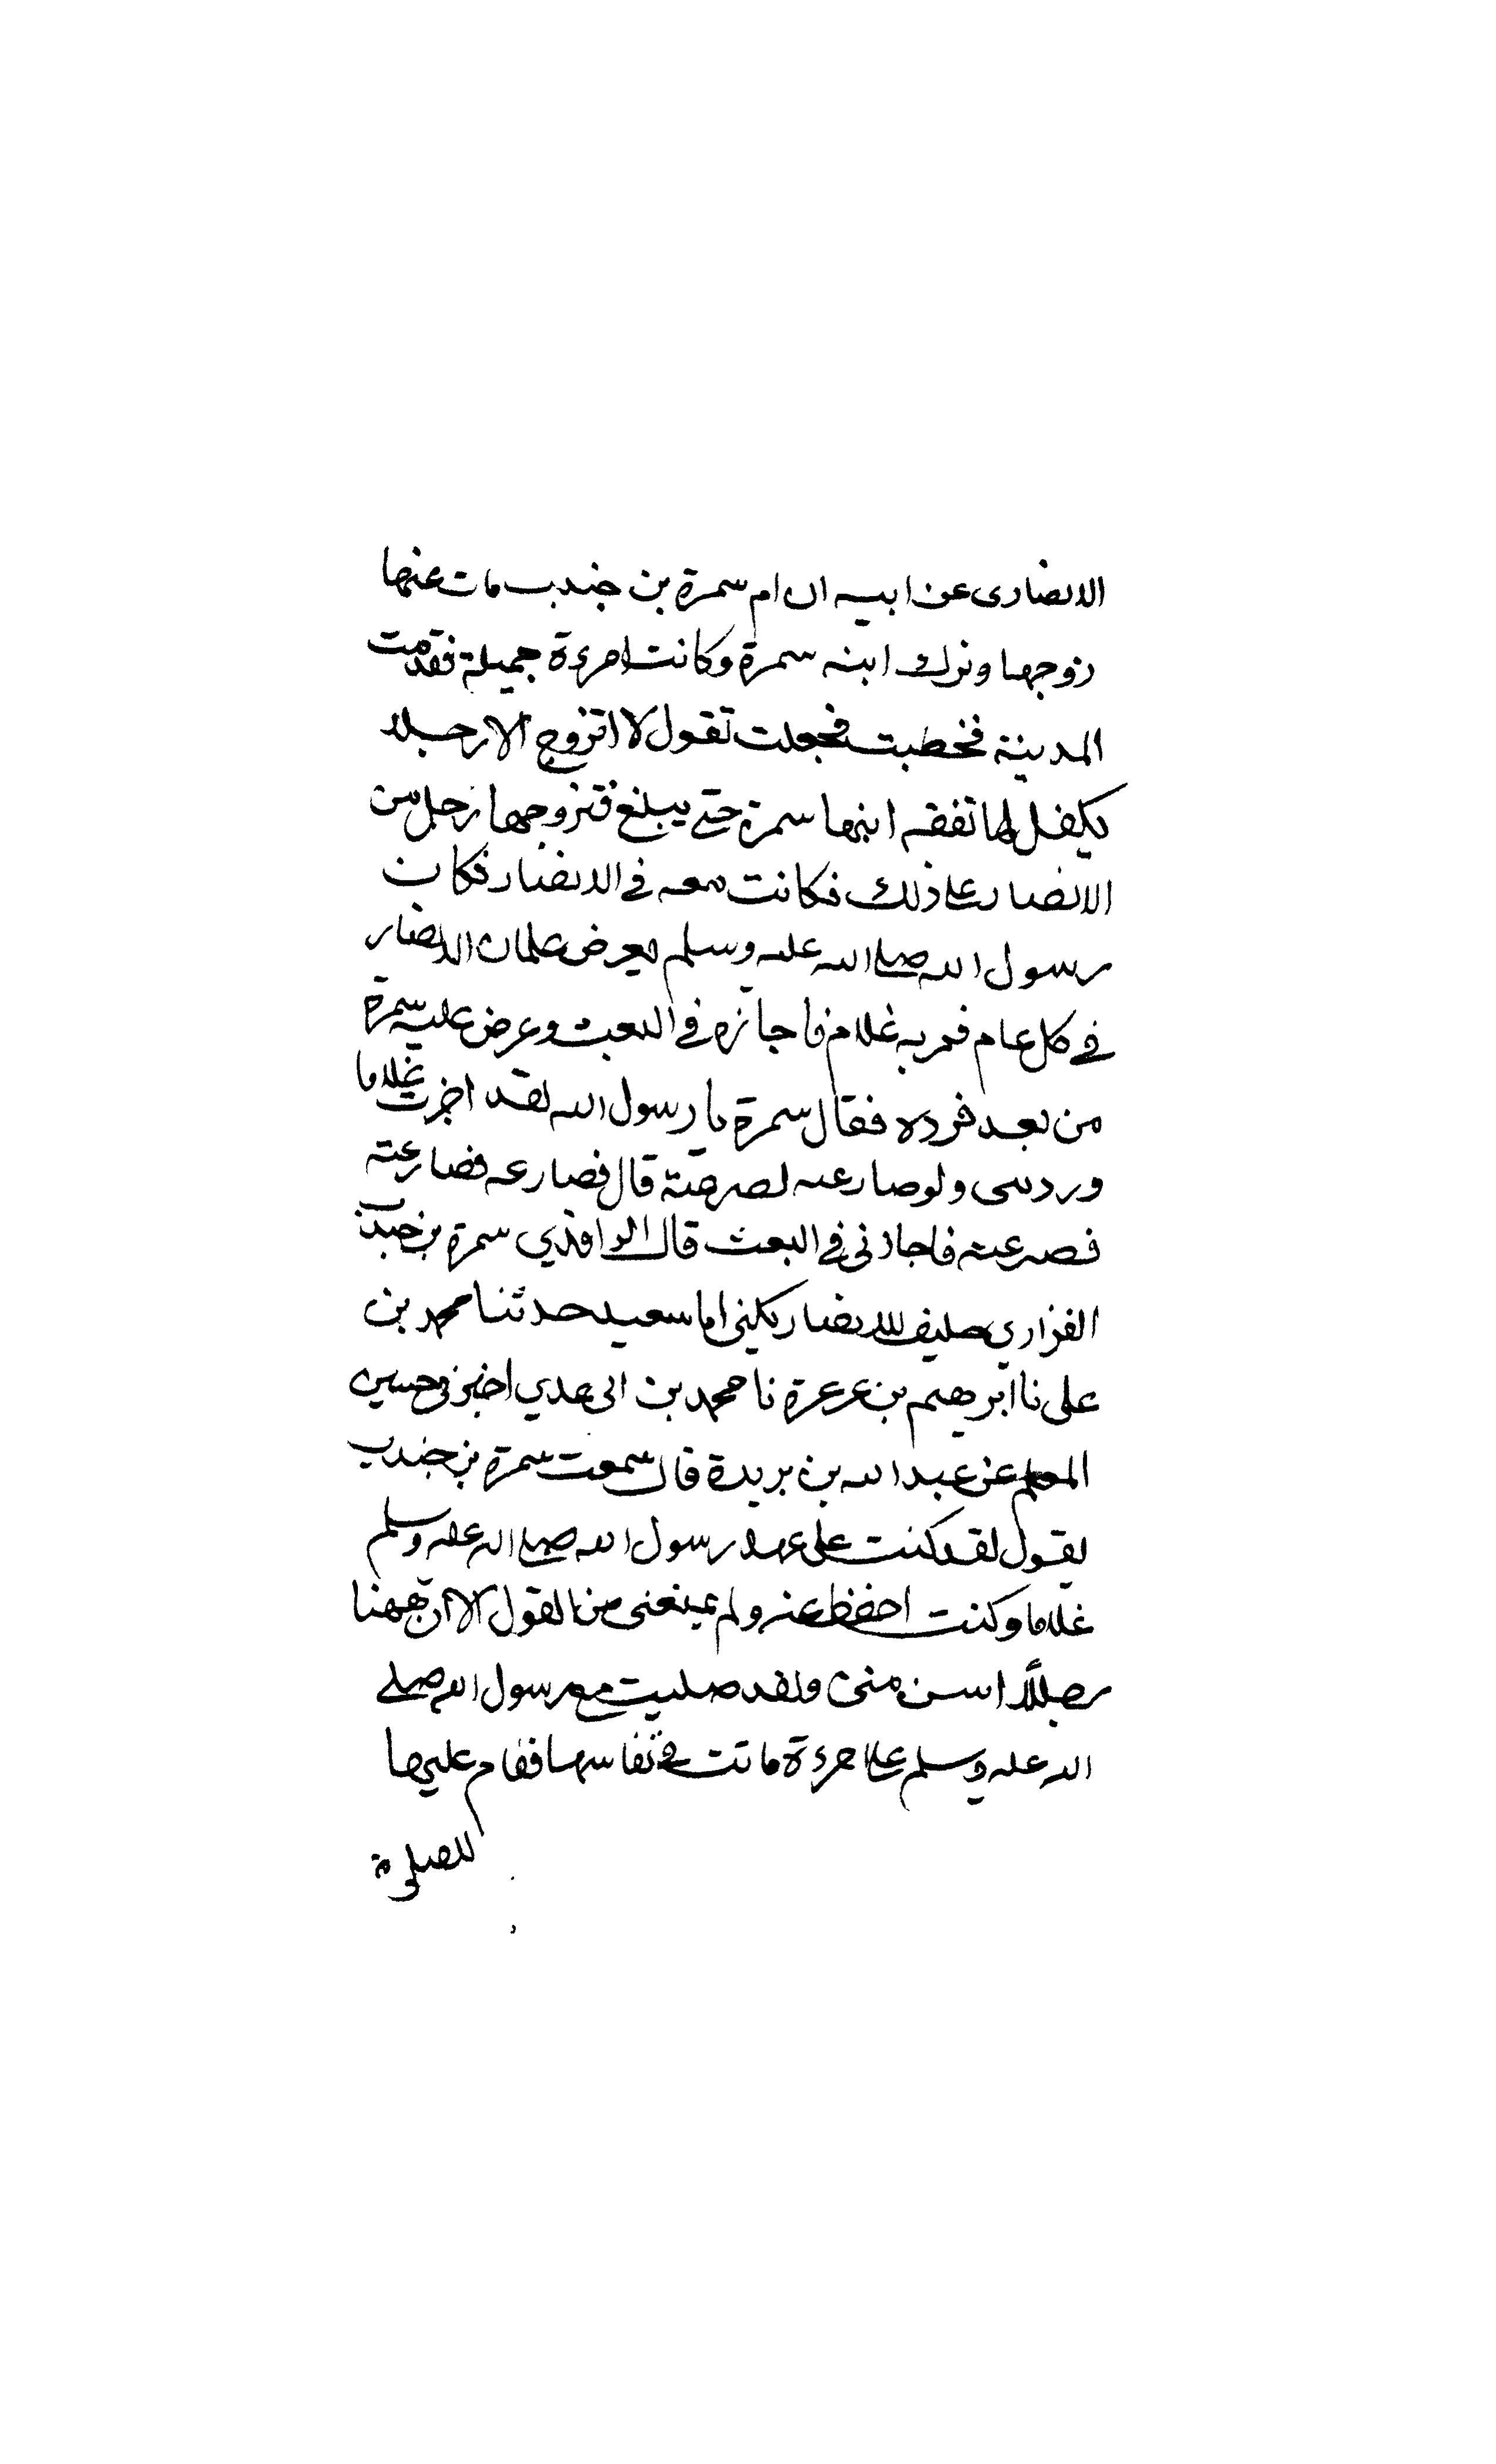 الانصارى عن ابيه ان ام سمرة بن جندب مات عنها
زوجها وترك ابنه سمرة وكانت امرءة جميلة فقدمت
المدينة فخطبت فجعلت تقول لا اتزوج الا رجلا
يكفل لها نفقه ابنها سمرة حتى يبلغ فتزوجها رجل من
الانصار على ذلك فكانت معه فى الانصار فكان
رسول الله صلى الله عليه وسلم يعرض غلمان الانصار
فى كل عام فمر به غلام فاجازه فى البعث وعرض عليه سمرة
من بعد فرده فقال سمرة يا رسول الله لقد اجزت غلاما
ورددتنى ولو صارعته لصرعته قال فصارعه فصارعته
فصرعته فاجازنى فى البعث قال الواقدي سمرة بن جندب
الفزاري حليف للانصار يكنى ابا سعيد حدثنا محمد بن
على نا ابرهيم بن عرعرة نا محمد بن ابى عدي اخبرنى حسين
المعلم عن عبد الله بن بريدة قال سمعت سمرة بن جندب
يقول لقد كنت على عهد رسول الله صلى الله عليه وسلم
غلاما وكنت احفظ عنه ولم يمنعنى من القول الا ان ههنا
رجلاً اسن منى ولقد صليت مع رسول الله صلى
الله عليه وسلم على امرءة ماتت فى نفاسها فقام عليها
للصلوة